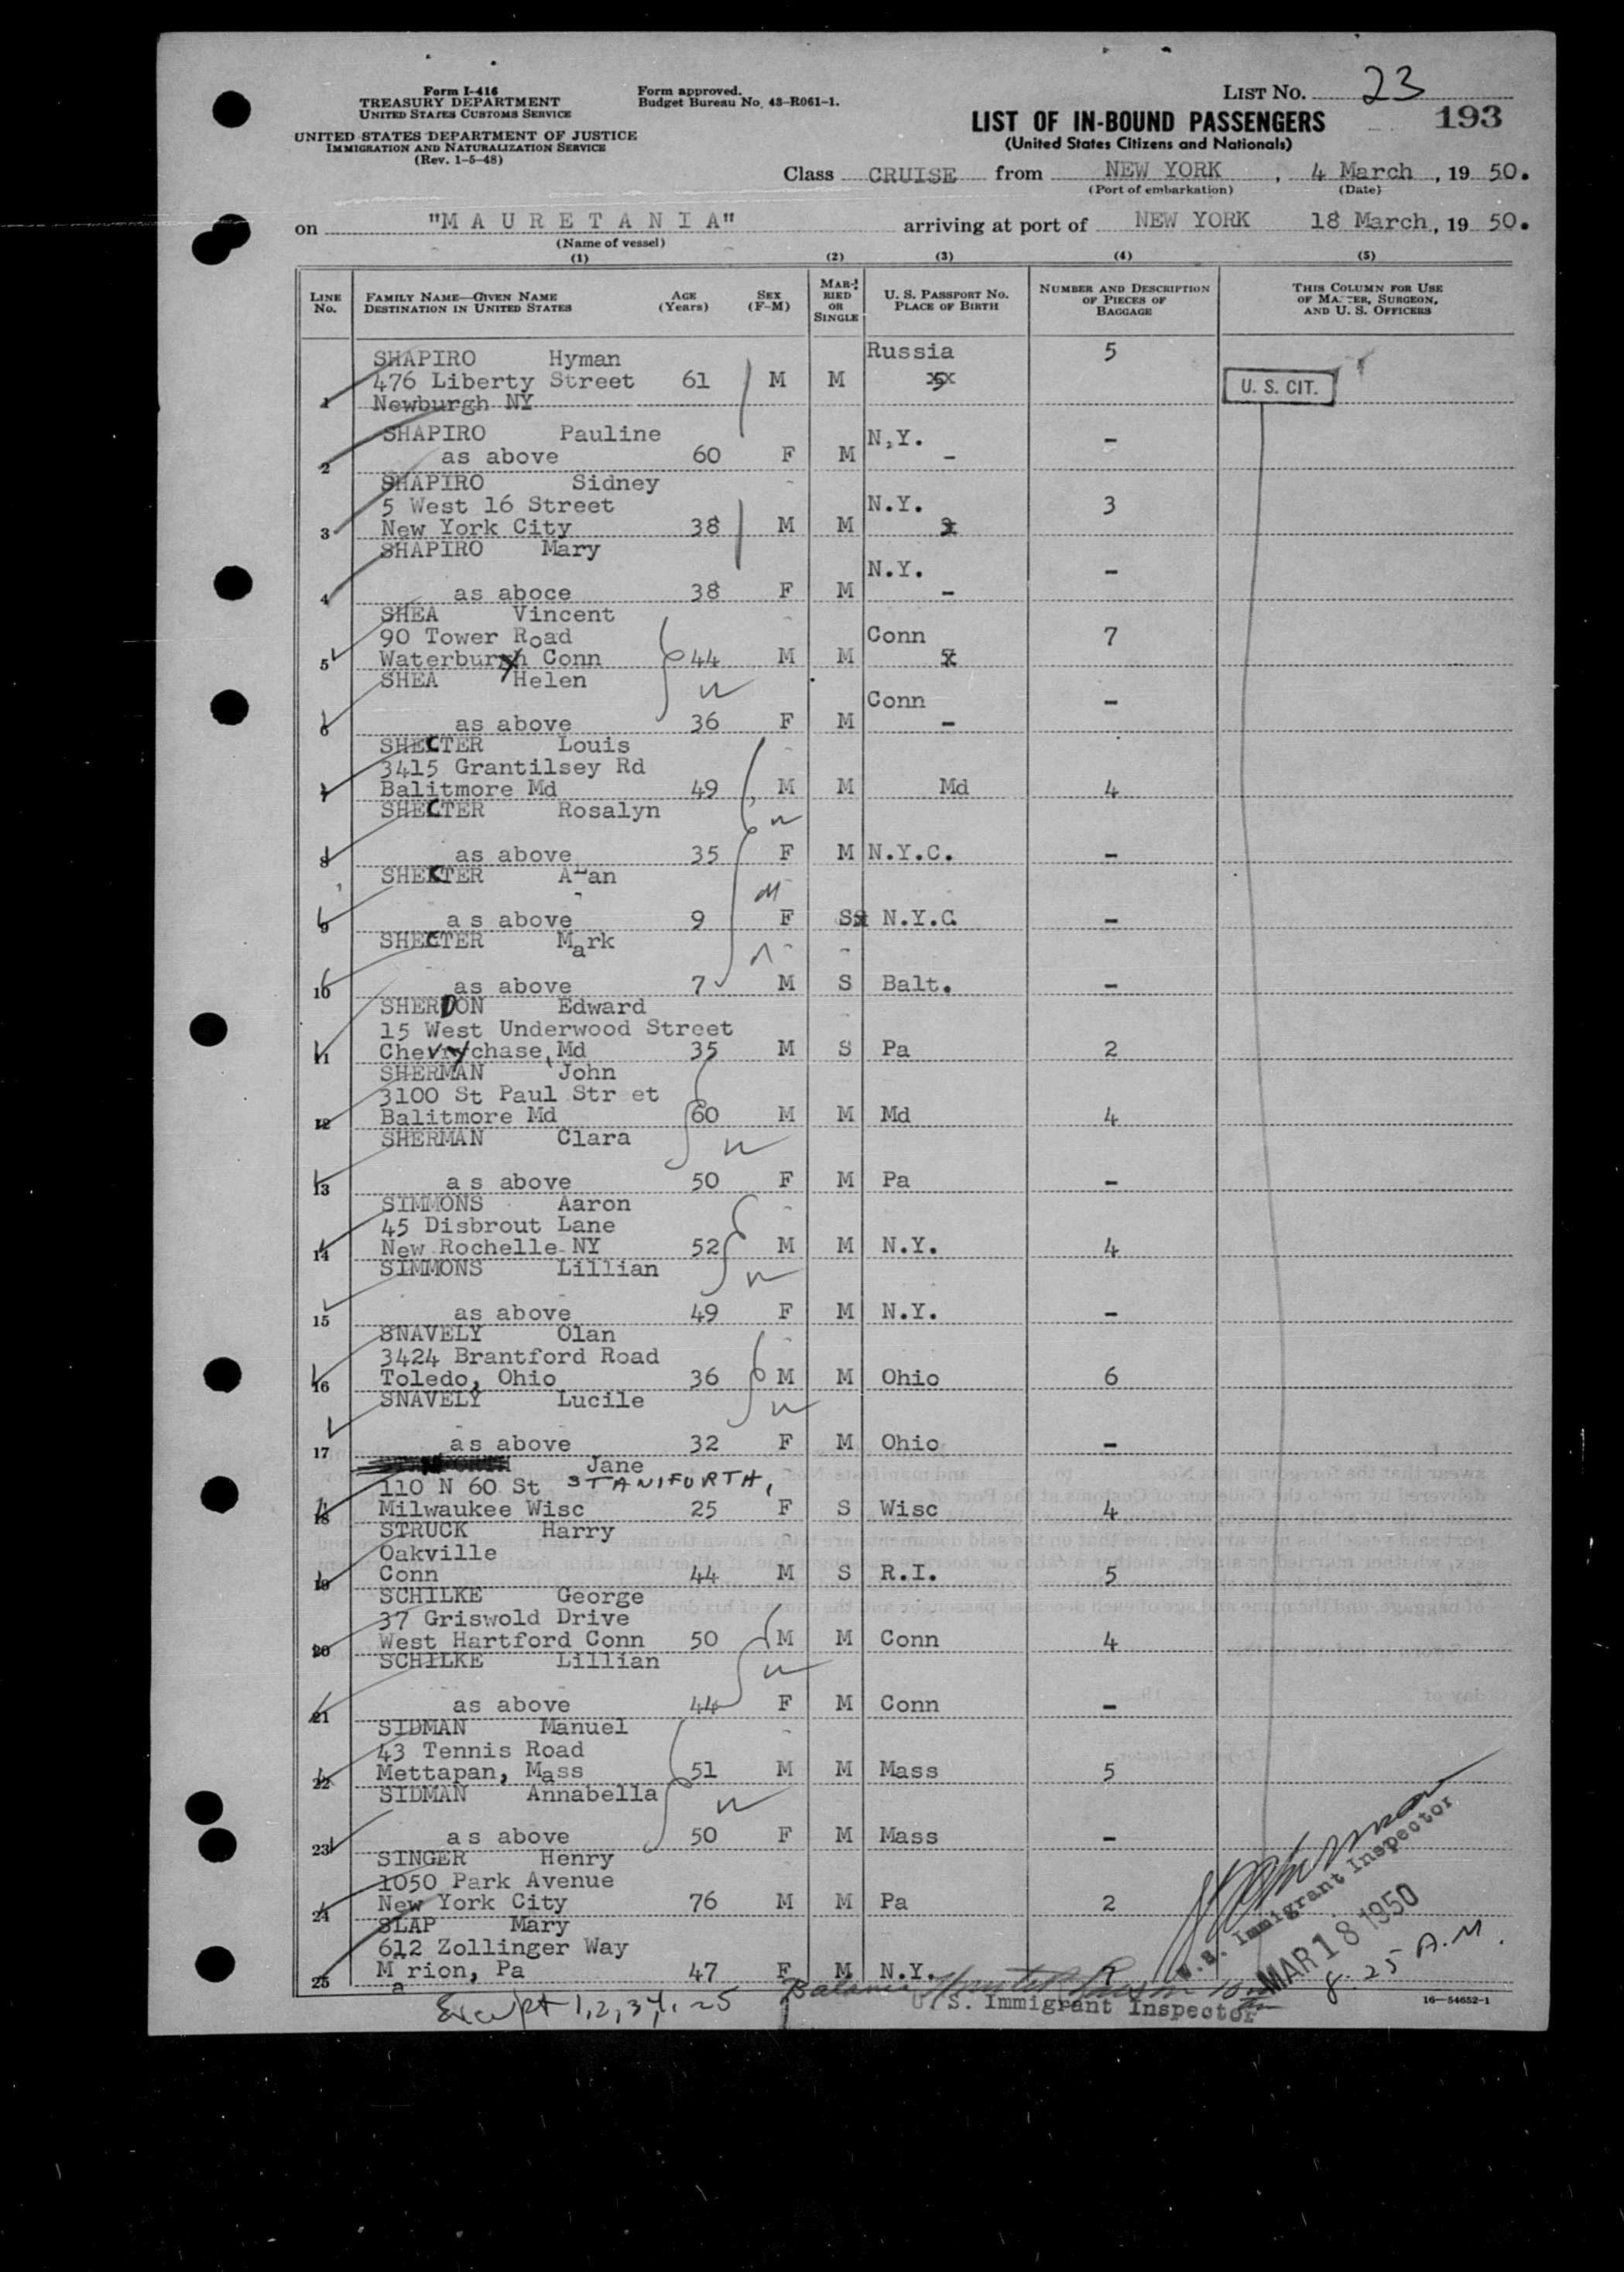 Form I-416
TREASURY DEPARTMENT
UNITED STATES CUSTOMS SERVICE
UNITED STATES DEPARTMENT OF JUSTICE
IMMIGRATION AND NATURALIZATION SERVICE
(Rev. 1-5-48)
Form approved.
Budget Bureau No. 43-R061-1.
LIST NO. 23
LIST OF IN-BOUND PASSENGERS 193
(United States Citizens and Nationals)
Class CRUISE from NEW YORK, 4 March, 19 50.
(Port of embarkation) (Date)
on "MAURETANIA" arriving at port of NEW YORK 18 March, 19 50.
(Name of vessel)
(1) (2) (3) (4) (5)
LINE NO. FAMILY NAME—GIVEN NAME DESTINATION IN UNITED STATES AGE (Years) SEX (F-M) MARRIED OR SINGLE U. S. PASSPORT NO. PLACE OF BIRTH NUMBER AND DESCRIPTION OF PIECES OF BAGGAGE THIS COLUMN FOR USE OF MASTER, SURGEON, AND U. S. OFFICERS
SHAPIRO Hyman Russia 5
476 Liberty Street 61 M M U. S. CIT.
1 Newburgh NY
SHAPIRO Pauline N.Y. -
2 as above 60 F M -
SHAPIRO Sidney
5 West 16 Street N.Y. 3
3 New York City 38 M M
SHAPIRO Mary
N.Y. -
4 as aboce 38 F M -
SHEA Vincent
90 Tower Road Conn 7
5 Waterbury Conn 44 M M
SHEA Helen
Conn -
6 as above 36 F M -
SHECTER Louis
3415 Grantilsey Rd
7 Balitmore Md 49 M M Md 4
SHECTER Rosalyn
8 as above 35 F M N.Y.C. -
SHECTER Alan
9 as above 9 F S N.Y.C. -
SHECTER Mark
10 as above 7 M S Balt. -
SHERDON Edward
15 West Underwood Street
11 Chevychase, Md 35 M S Pa 2
SHERMAN John
3100 St Paul Str et
12 Balitmore Md 60 M M Md 4
SHERMAN Clara
13 as above 50 F M Pa -
SIMMONS Aaron
45 Disbrout Lane
14 New Rochelle NY 52 M M N.Y. 4
SIMMONS Lillian
15 as above 49 F M N.Y. -
SNAVELY Olan
3424 Brantford Road
16 Toledo, Ohio 36 M M Ohio 6
SNAVELY Lucile
17 as above 32 F M Ohio -
Jane
110 N 60 St STANIFORTH,
18 Milwaukee Wisc 25 F S Wisc 4
STRUCK Harry
Oakville
19 Conn 44 M S R.I. 5
SCHILKE George
37 Griswold Drive
20 West Hartford Conn 50 M M Conn 4
SCHILKE Lillian
21 as above 44 F M Conn -
SIDMAN Manuel
43 Tennis Road
22 Mettapan, Mass 51 M M Mass 5
SIDMAN Annabella
23 as above 50 F M Mass -
SINGER Henry
1050 Park Avenue
24 New York City 76 M M Pa 2
SLAP Mary
612 Zollinger Way
25 Marion, Pa 47 F M N.Y.
U.S. Immigrant Inspector
MAR 18 1950
8.25 A.M.
Except 1, 2, 3, 4, 25 Balance
U. S. Immigrant Inspector
16—54652-1